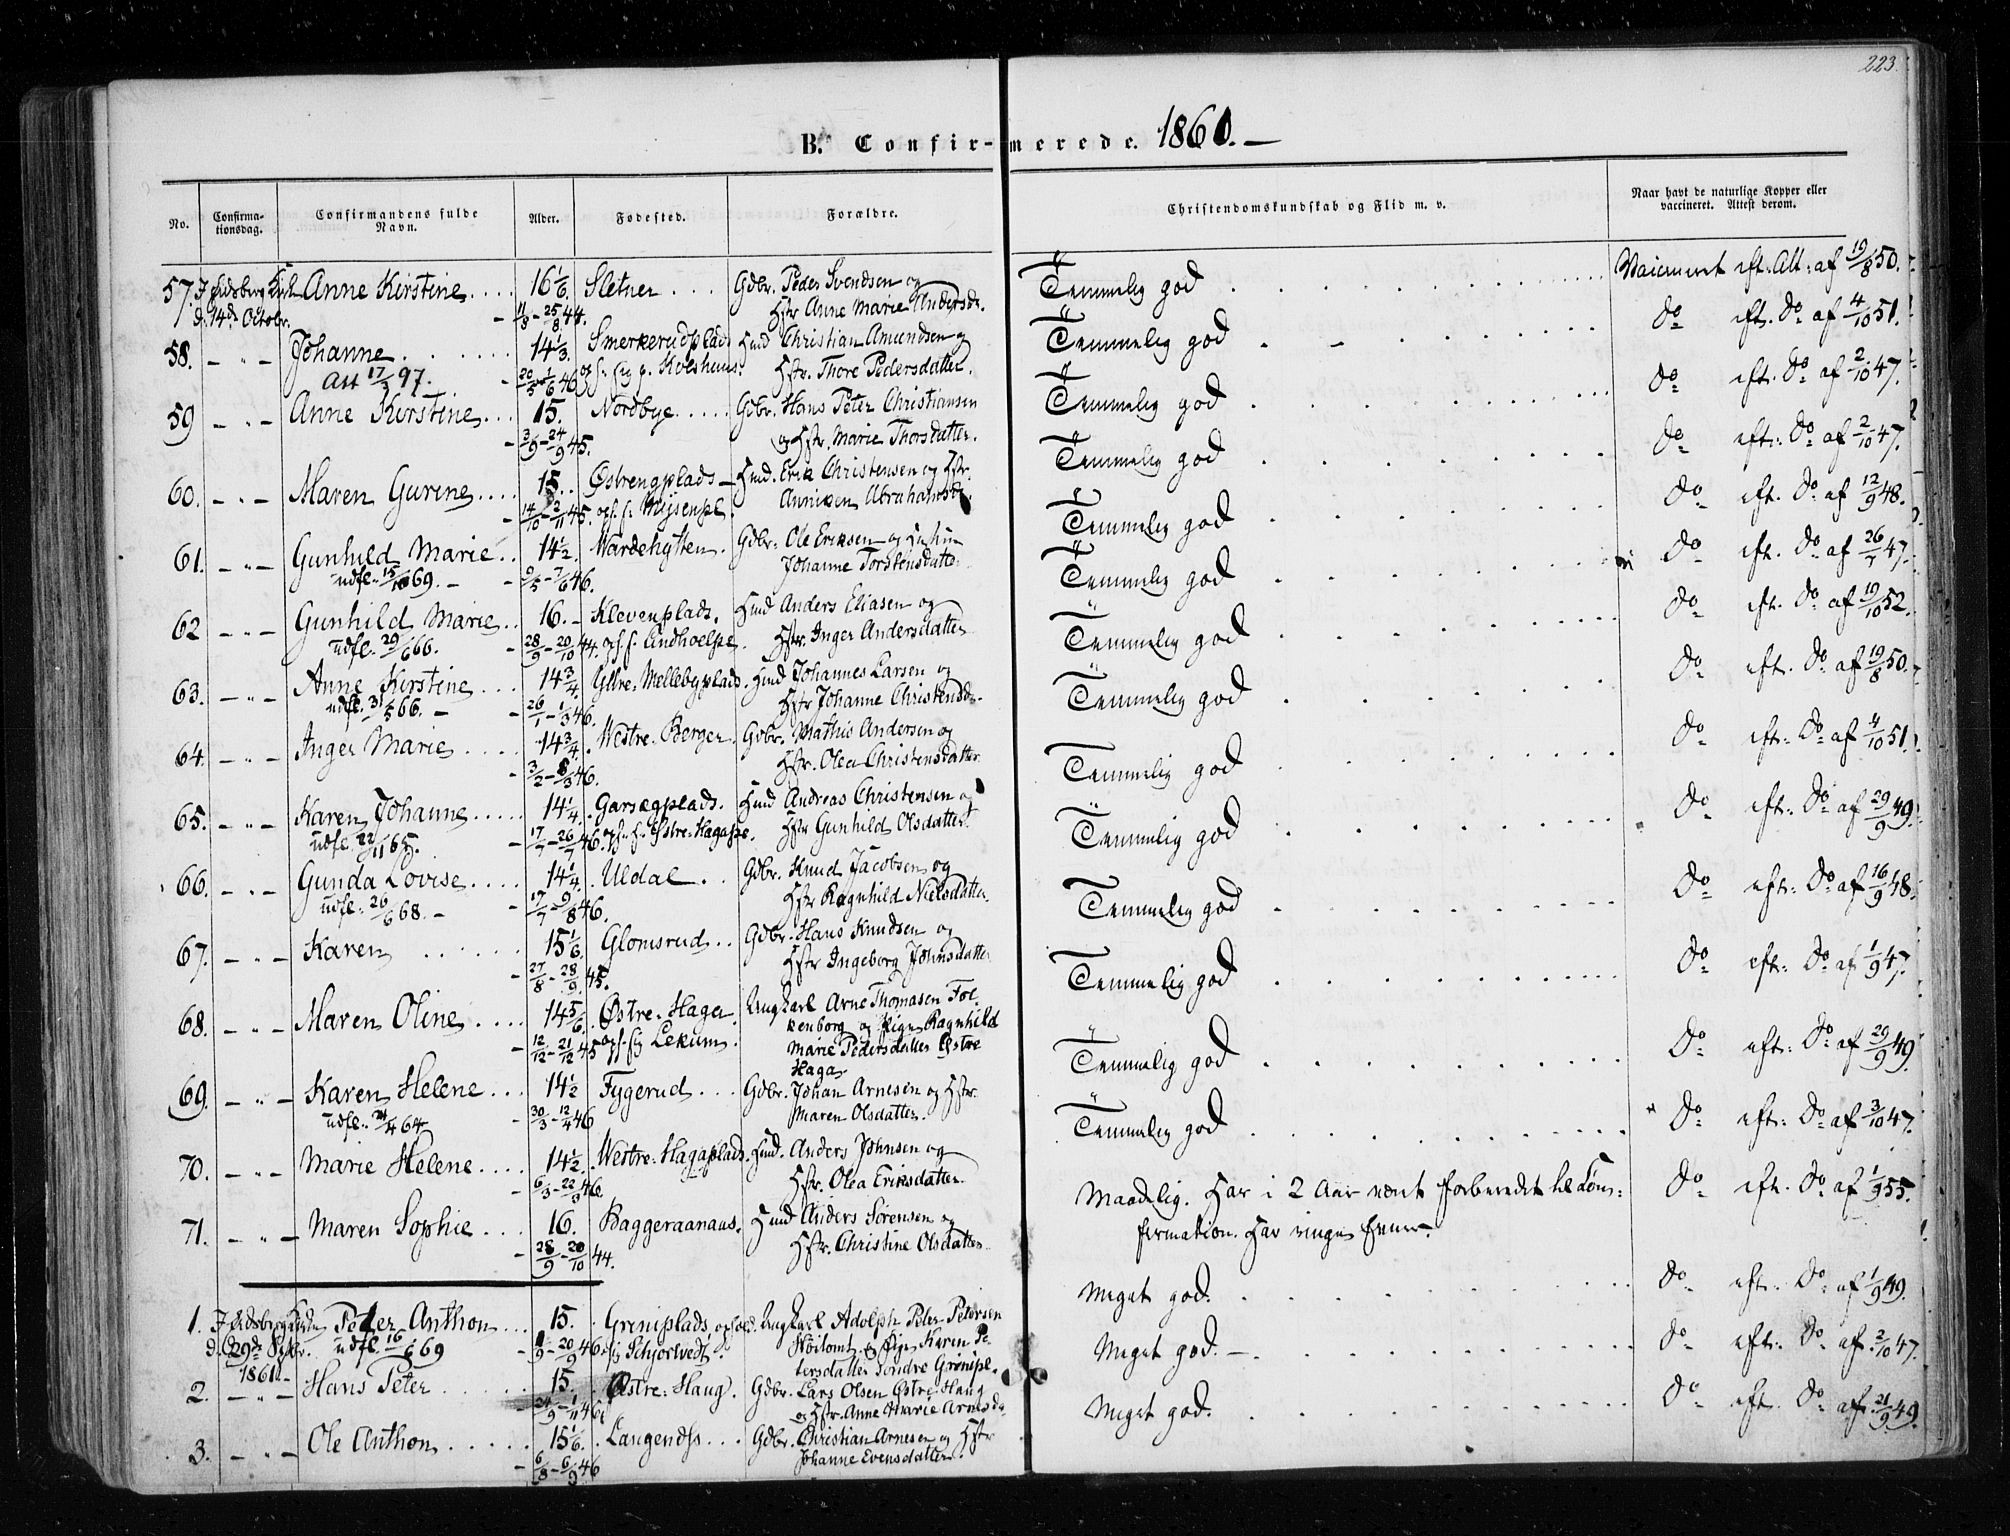 223.
B. Confir-merede. 1860. —
No. Confirma-tionsdag. Confirmandens fulde Navn. Alder. Fødested. Forældre. Christendomskundskab og Flid m. v. Naar havt de naturlige Kopper eller vaccineret. Attest derom.
57. Anne Kirstine 16 1/6. Sletner Gdbr. Peder Svendsen og Temmelig god eft. Att: af 19/8 50.
d: 14de Octobr. 11/8 - 25/8 44. Hstr Anne Marie Andersd.
58. — " — Johanne 14 1/3. Smerkerudplads Huusmd Christian Amundsen og Temmelig god do eft. do af 4/10 51.
Att 17/3 97. 20/5 - 1/6 46 Hstr. Thore Pedersdatter.
59 — " — Anne Kirstine 15. Nordbye Gdbr. Hans Peter Christiansen Temmelig god do eft. do af 2/10 47.
3/9 - 24/9 45. og Hstr. Marie Thorsdatter.
60. — " — Maren Gurine 15. Østrengplads Huusmd. Erik Christensen og Hstr. Temmelig god do eft: do af 2/10 47.
14/10 - 2/11 45. Anniken Abrahamsd.
61. — " — Gunhild Marie 14 1/2. Wardehytten. Gdbr. Ole Eriksen og Temmelig god do eft. do af 12/9 48.
udfl. 15/10 69. — 9/5 - 7/6 46. Johanne Torstensdatter
62 — " — Gunhild Marie 16. Klevenplads. Anders Eliasen og Temmelig god do eft. do af 26/7 47.
udfl. 29/6 66. 28/9 - 20/10 44. Hstr. Inger Andersdatter
63. — " — Anne Kirstine 14 3/4 Yttre Mellebyplads. Johannes Larsen og Temmelig god do eft. do af 19/10 52.
udfl. 31/5 66. — 26/1 - 1/3 46. Hstr Johanne Christensd.
64. — " — Inger Marie 14 3/4. Westre Berger. Gdbr. Mathis Andersen og Temmelig god do eft. do af 19/8 50.
3/2 - 8/3 46. Hstr. Olea Christensdatter
65. — " — Karen Johanne 14 1/4. Garsegplads. Andreas Christensen og Temmelig god do eft: do af 4/10 51.
udfl. 22/11 65. 17/7 - 26/7 46. Østre Haga Hstr Gunhild Olsdatter.
66. — " — Gunda Lovise 14 1/4. Uldal Gdbr. Knud Jacobsen og Temmelig god do eft: do af 29/9 49.
udfl: 26/6 68. — 17/7 - 9/8 46. Hstr Ragnhild Nielsdatter.
67. — " — Karen 15 1/6. Glomsrud Gdbr. Hans Knudsen og Temmelig god do eft: do af 16/9 48.
27/8 - 28/9 45. Hstr Ingeborg Johnsdatter
68. — " — Maren Oline 14 5/6. Østre Haga. Ungkarl Arne Thomasen Fol- Temmelig god do eft: do af 1/9 47.
12/12 - 21/12 45 Lekum. kenborg og Pige Ragnhild
Marie Pedersdatter Østre
Haga
69. — " — Karen Helene 14 1/2 Fygerud Gdbr. Johan Arnesen og Hstr. Temmelig god do eft: do af 29/9 49
udfl. 21/4 64 30/3 - 12/4 46 Maren Olsdatter.
70. — " — Marie Helene 14 1/2. Westre Hagaplads. Anders Johnsen og Temmelig god do eft: do af 3/10 47.
6/3 - 22/3 46. Hstr. Olea Eriksdatter
71. — " — Maren Sophie 16. Baggeraanaas. Anders Sørensen og Maadelig. Har i 2 Aar været forberedet til Con= do eft. do af 1/9 55.
28/9 - 20/10 44. Hstr. Christine Olsdatter firmation. Har ringe Evner.
1. Peter Anthon 15. Greniplads, Ungkarl Adolph Peter Petersen Meget god. do eft: do af 1/9 49.
d. 29de Sptbr. udfl. 16/6 69 20/9 46. Schjorvedt. og Pige Karen Pe-
1861 — tersdatter Søndre Grenipl.
2. — " — Hans Peter 15. Østre Haug. Gdbr. Lars Olsen Østre Haug Meget god. — do eft: do af 2/10 47.
24/9 - 1/11 46. og Hstr. Anne Marie Arnesd.
3. — " — Ole Anthon 15 1/6. Langenæs Gdbr. Christian Arnesen og Hstr Meget god. do eft. do af 21/9 49.
6/8 - 6/9 46 Johanne Evensdatter.